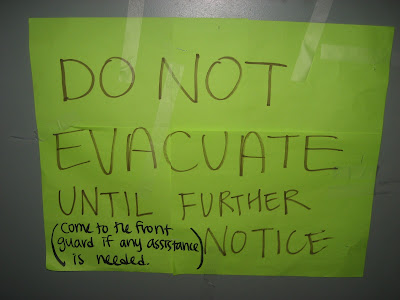 DO NOT
EVACUATE
UNTIL FURTHER
NOTICE
(Come to the front
guard if any assistance
is needed.)